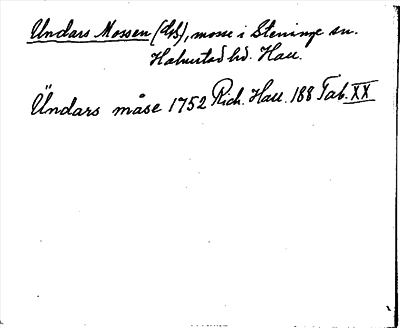 Undars Mossen (GS), mosse i Steninge sn.
Halmstad hd. Hall.
Ändars måse 1752 Rich. Hall. 188 Tab. XX